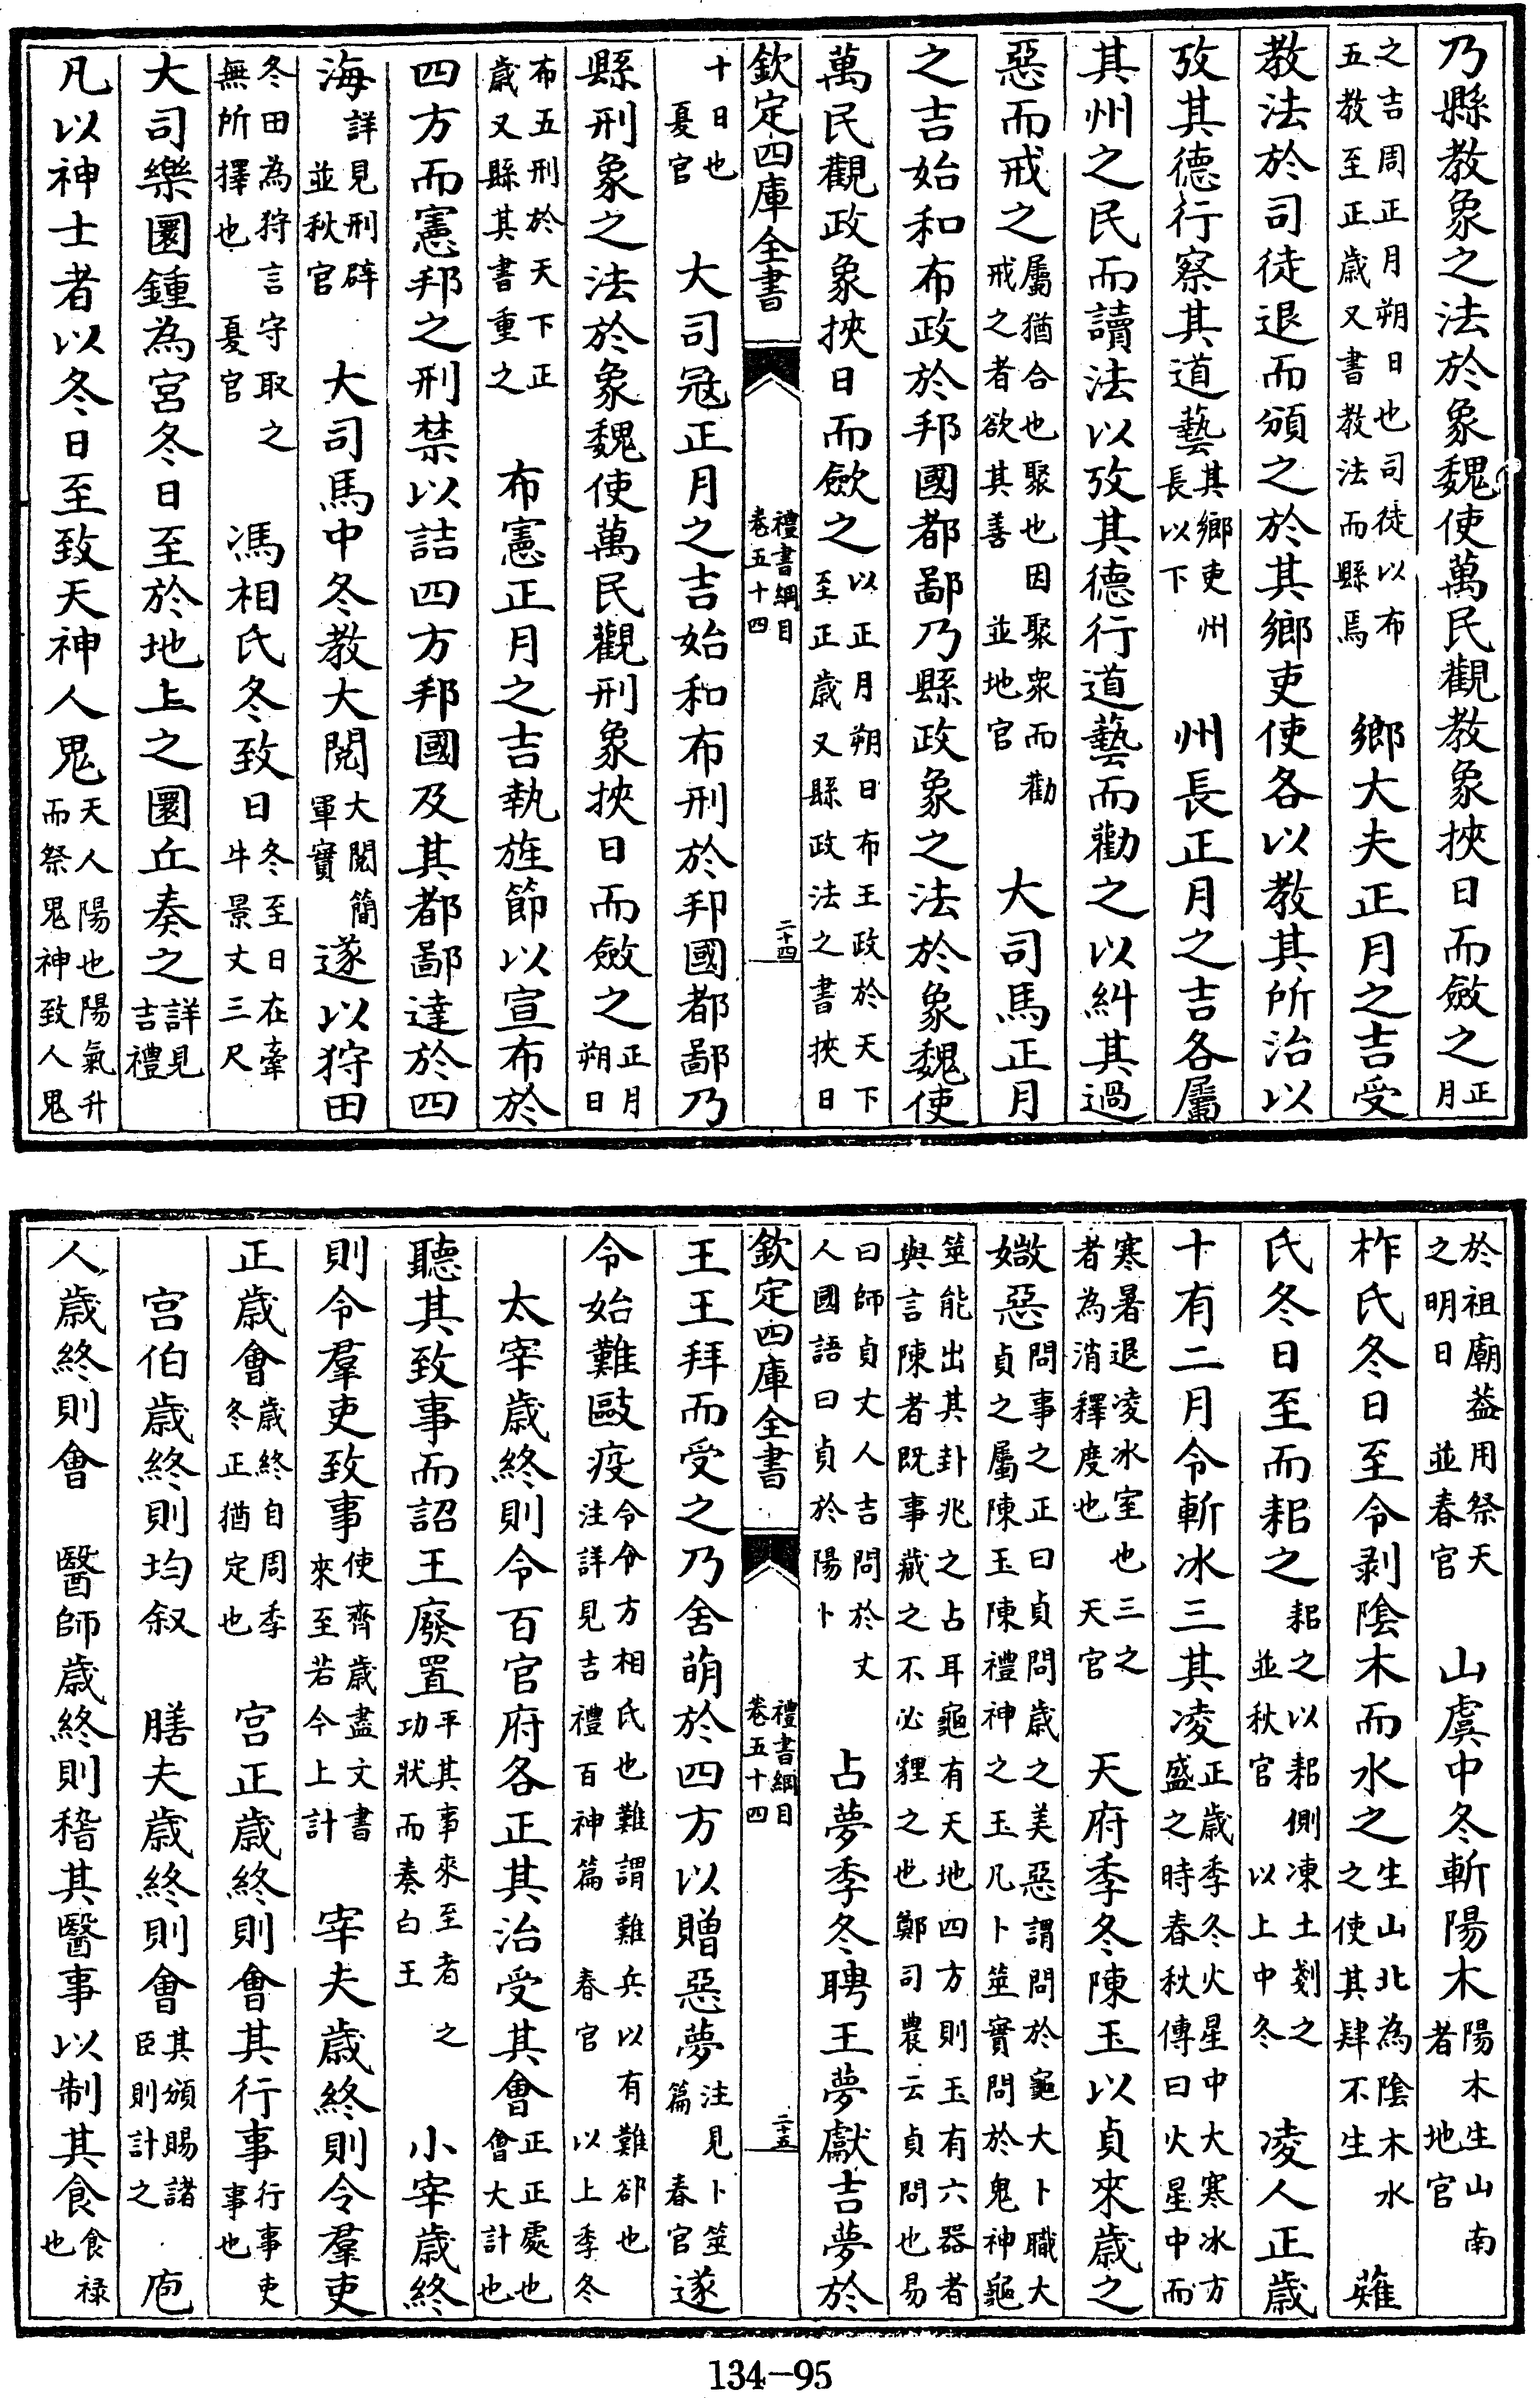 乃縣教象之法於象魏使萬民觀教象挾日而斂之正月
之吉周正月朔日也司徒以布五教至正歲又書教法而縣焉　鄉大夫正月之吉受
教法於司徒退而頒之於其鄉吏使各以教其所治以
攷其德行察其道藝其鄉吏州長以下　州長正月之吉各屬
其州之民而讀法以攷其德行道藝而勸之以糾其過
惡而戒之屬猶合也聚也因聚衆而勸戒之者欲其善　並地官　大司馬正月
之吉始和布政於邦國都鄙乃縣政象之法於象魏使
萬民觀政象挾日而斂之以正月朔日布王政於天下至正歲又縣政法之書挾日
欽定四庫全書　禮書綱目　卷五十四　二十四
十日也　夏官　大司寇正月之吉始和布刑於邦國都鄙乃
縣刑象之法於象魏使萬民觀刑象挾日而斂之正月朔日
布五刑於天下正歲又縣其書重之　布憲正月之吉執旌節以宣布於
四方而憲邦之刑禁以詰四方邦國及其都鄙達於四
海詳見刑辟　並秋官　大司馬中冬教大閱大閱簡軍實遂以狩田
冬田為狩言守取之無所擇也　夏官　馮相氏冬致日冬至日在牽牛景丈三尺
大司樂圜鍾為宮冬日至於地上之圜丘奏之詳見吉禮
凡以神士者以冬日至致天神人鬼天人陽也陽氣升而祭鬼神致人鬼
於祖廟葢用祭天之明日　並春官　山虞中冬斬陽木陽木生山南者　地官
柞氏冬日至令剥陰木而水之生山北為陰木水之使其肄不生　薙
氏冬日至而耜之耜之以耜側凍土剗之　並秋官　以上中冬　凌人正歲
十有二月令斬冰三其凌正歲季冬火星中大寒冰方盛之時春秋傳曰火星中而
寒暑退凌冰室也三之者為消釋度也　天官　天府季冬陳玉以貞來歲之
媺惡問事之正曰貞問歲之美惡謂問於龜大卜職大貞之屬陳玉陳禮神之玉凡卜筮實問於鬼神龜
筮能出其卦兆之占耳龜有天地四方則玉有六器者與言陳者既事藏之不必貍之也鄭司農云貞問也易
曰師貞丈人吉問於丈人國語曰貞於陽卜　占夢季冬聘王夢獻吉夢於
欽定四庫全書　禮書綱目　卷五十四　二十五
王王拜而受之乃舍萌於四方以贈惡夢注見卜筮篇　春官　遂
令始難毆疫令令方相氏也難謂難兵以有難卻也注詳見吉禮百神篇　春官　以上季冬
太宰歲終則令百官府各正其治受其會正正處也會大計也
聽其致事而詔王廢置平其事來至者之功狀而奏白王　小宰歲終
則令羣吏致事使齊歲盡文書來至若今上計　宰夫歲終則令羣吏
正歲會歲終自周季冬正猶定也　宫正歲終則會其行事行事吏事也
宫伯歲終則均叙　膳夫歲終則會其頒賜諸臣則計之　庖
人歲終則會　醫師歲終則稽其醫事以制其食食禄也
134-95